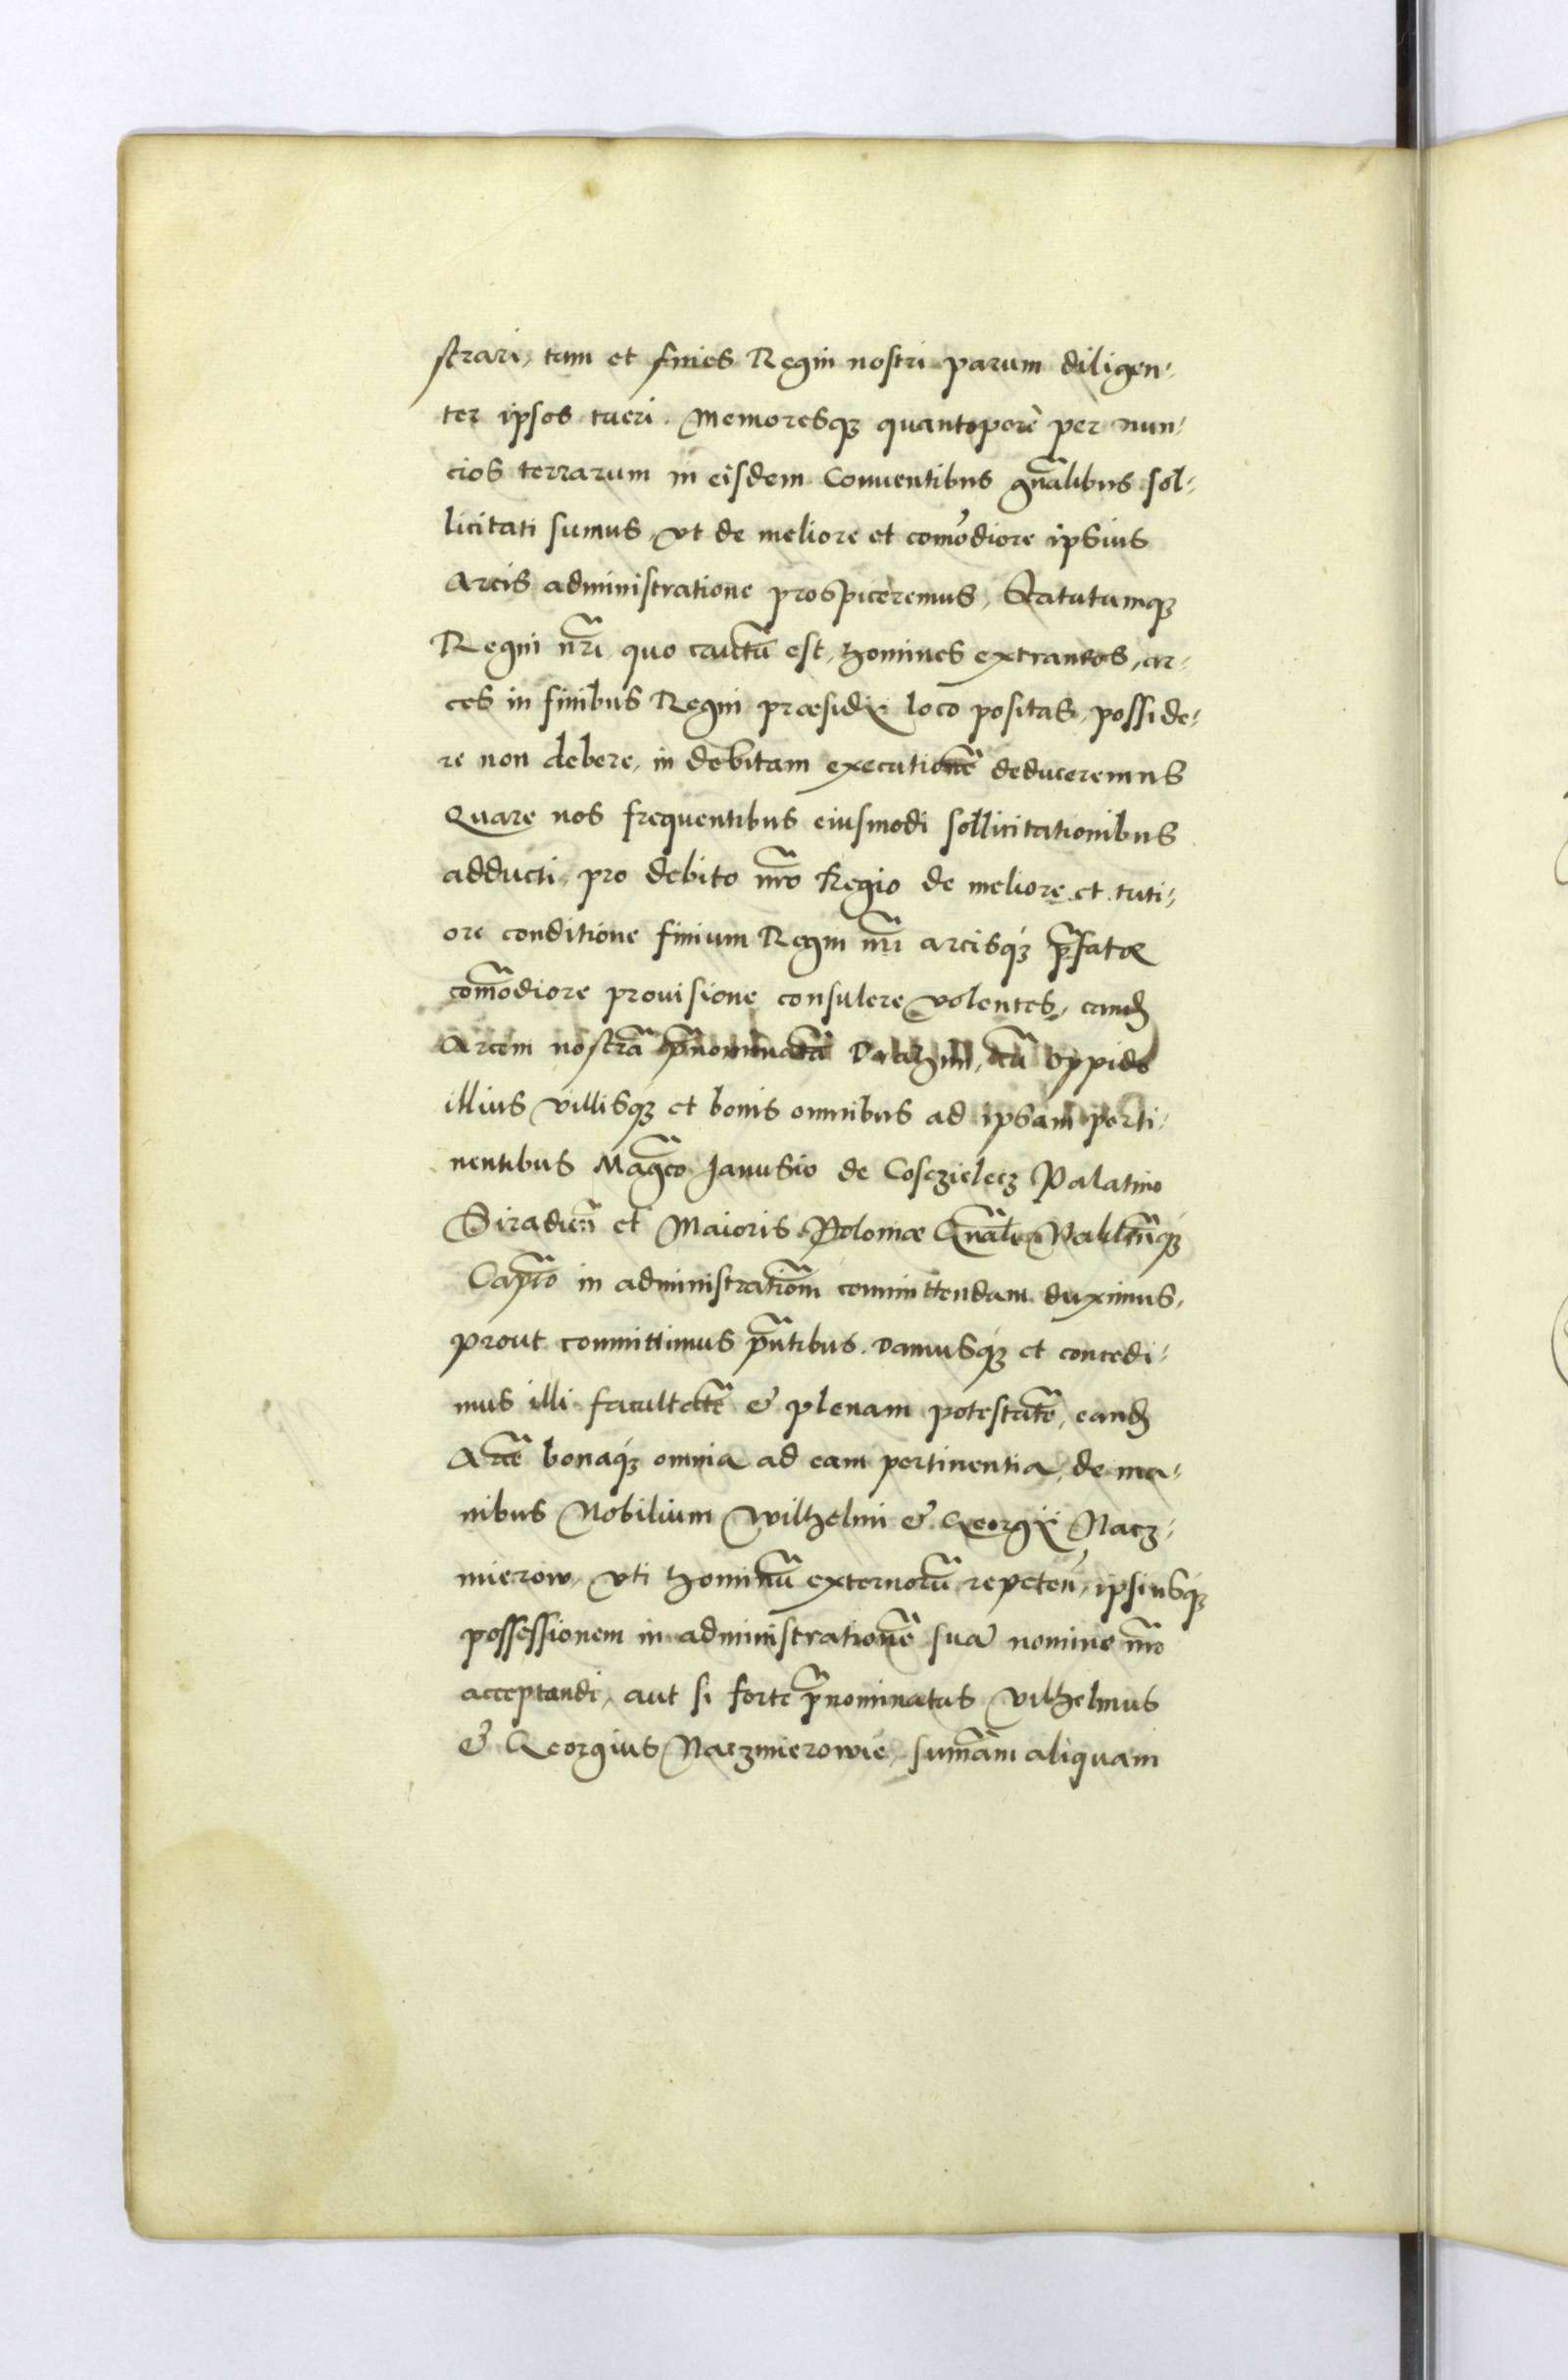 strari, tum et fines Regni nostri parum diligen-
ter ipsos tueri. Memoresqꝫ quantopere per nun-
cios terrarum in eisdem Conuentibus gnãlibus sol-
licitati sumus, vt de meliore et com̃odiore ipsius
Arcis administratione prospiceremus, Statutumqꝫ
Regni nr̃i, quo cautũ est, homines extraneos, ar-
ces in finibus Regni præsidij loco positas, posside-
re non debere, in debitam executionẽ deduceremus
Quare nos frequentibus eiusmodi sollicitationibus
adducti, pro debito nr̃o Regio de meliore et tuti-
ore conditione finium Regni nr̃i arcisqꝫ p̃fatæ
com̃odiore prouisione consulere volentes, eandẽ
Arcem nostrã p̃nominatã Drahim, cũ oppido
illius villisqꝫ et bonis omnibus ad ipsam perti-
nentibus Mag̃co Janusio de Cosczielecz Palatino
Siradieñ et Maioris Poloniæ Gnãli Nakleñqꝫ
Cap̃to in administratiõm committendam duximus,
prout committimus p̃ntibus. Damusqꝫ et concedi-
mus illi facultatẽ & plenam potestatẽ, eandẽ
Arcẽ bonaqꝫ omnia ad eam pertinentia, de ma-
nibus Nobilium Wilhelmi & Georgij Nacz-
mierow, vti hominũ externorũ repeteñ, ipsiusqꝫ
possessionem in administrationẽ suã nomine nr̃o
acceptandi, aut si forte p̃nominatus Vilhelmus
& Georgius Naczmierowie, sum̃am aliquam